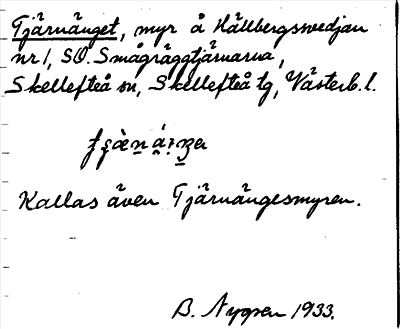 Tjärnänget, myr å Hällbergsvedjan
nr 1, SO. Smågräggtjärnarna,
Skellefteå sn, Skellefteå tg, Västerb. l.
Kallas även Tjärnängesmyren.
B. Nygren 1933.